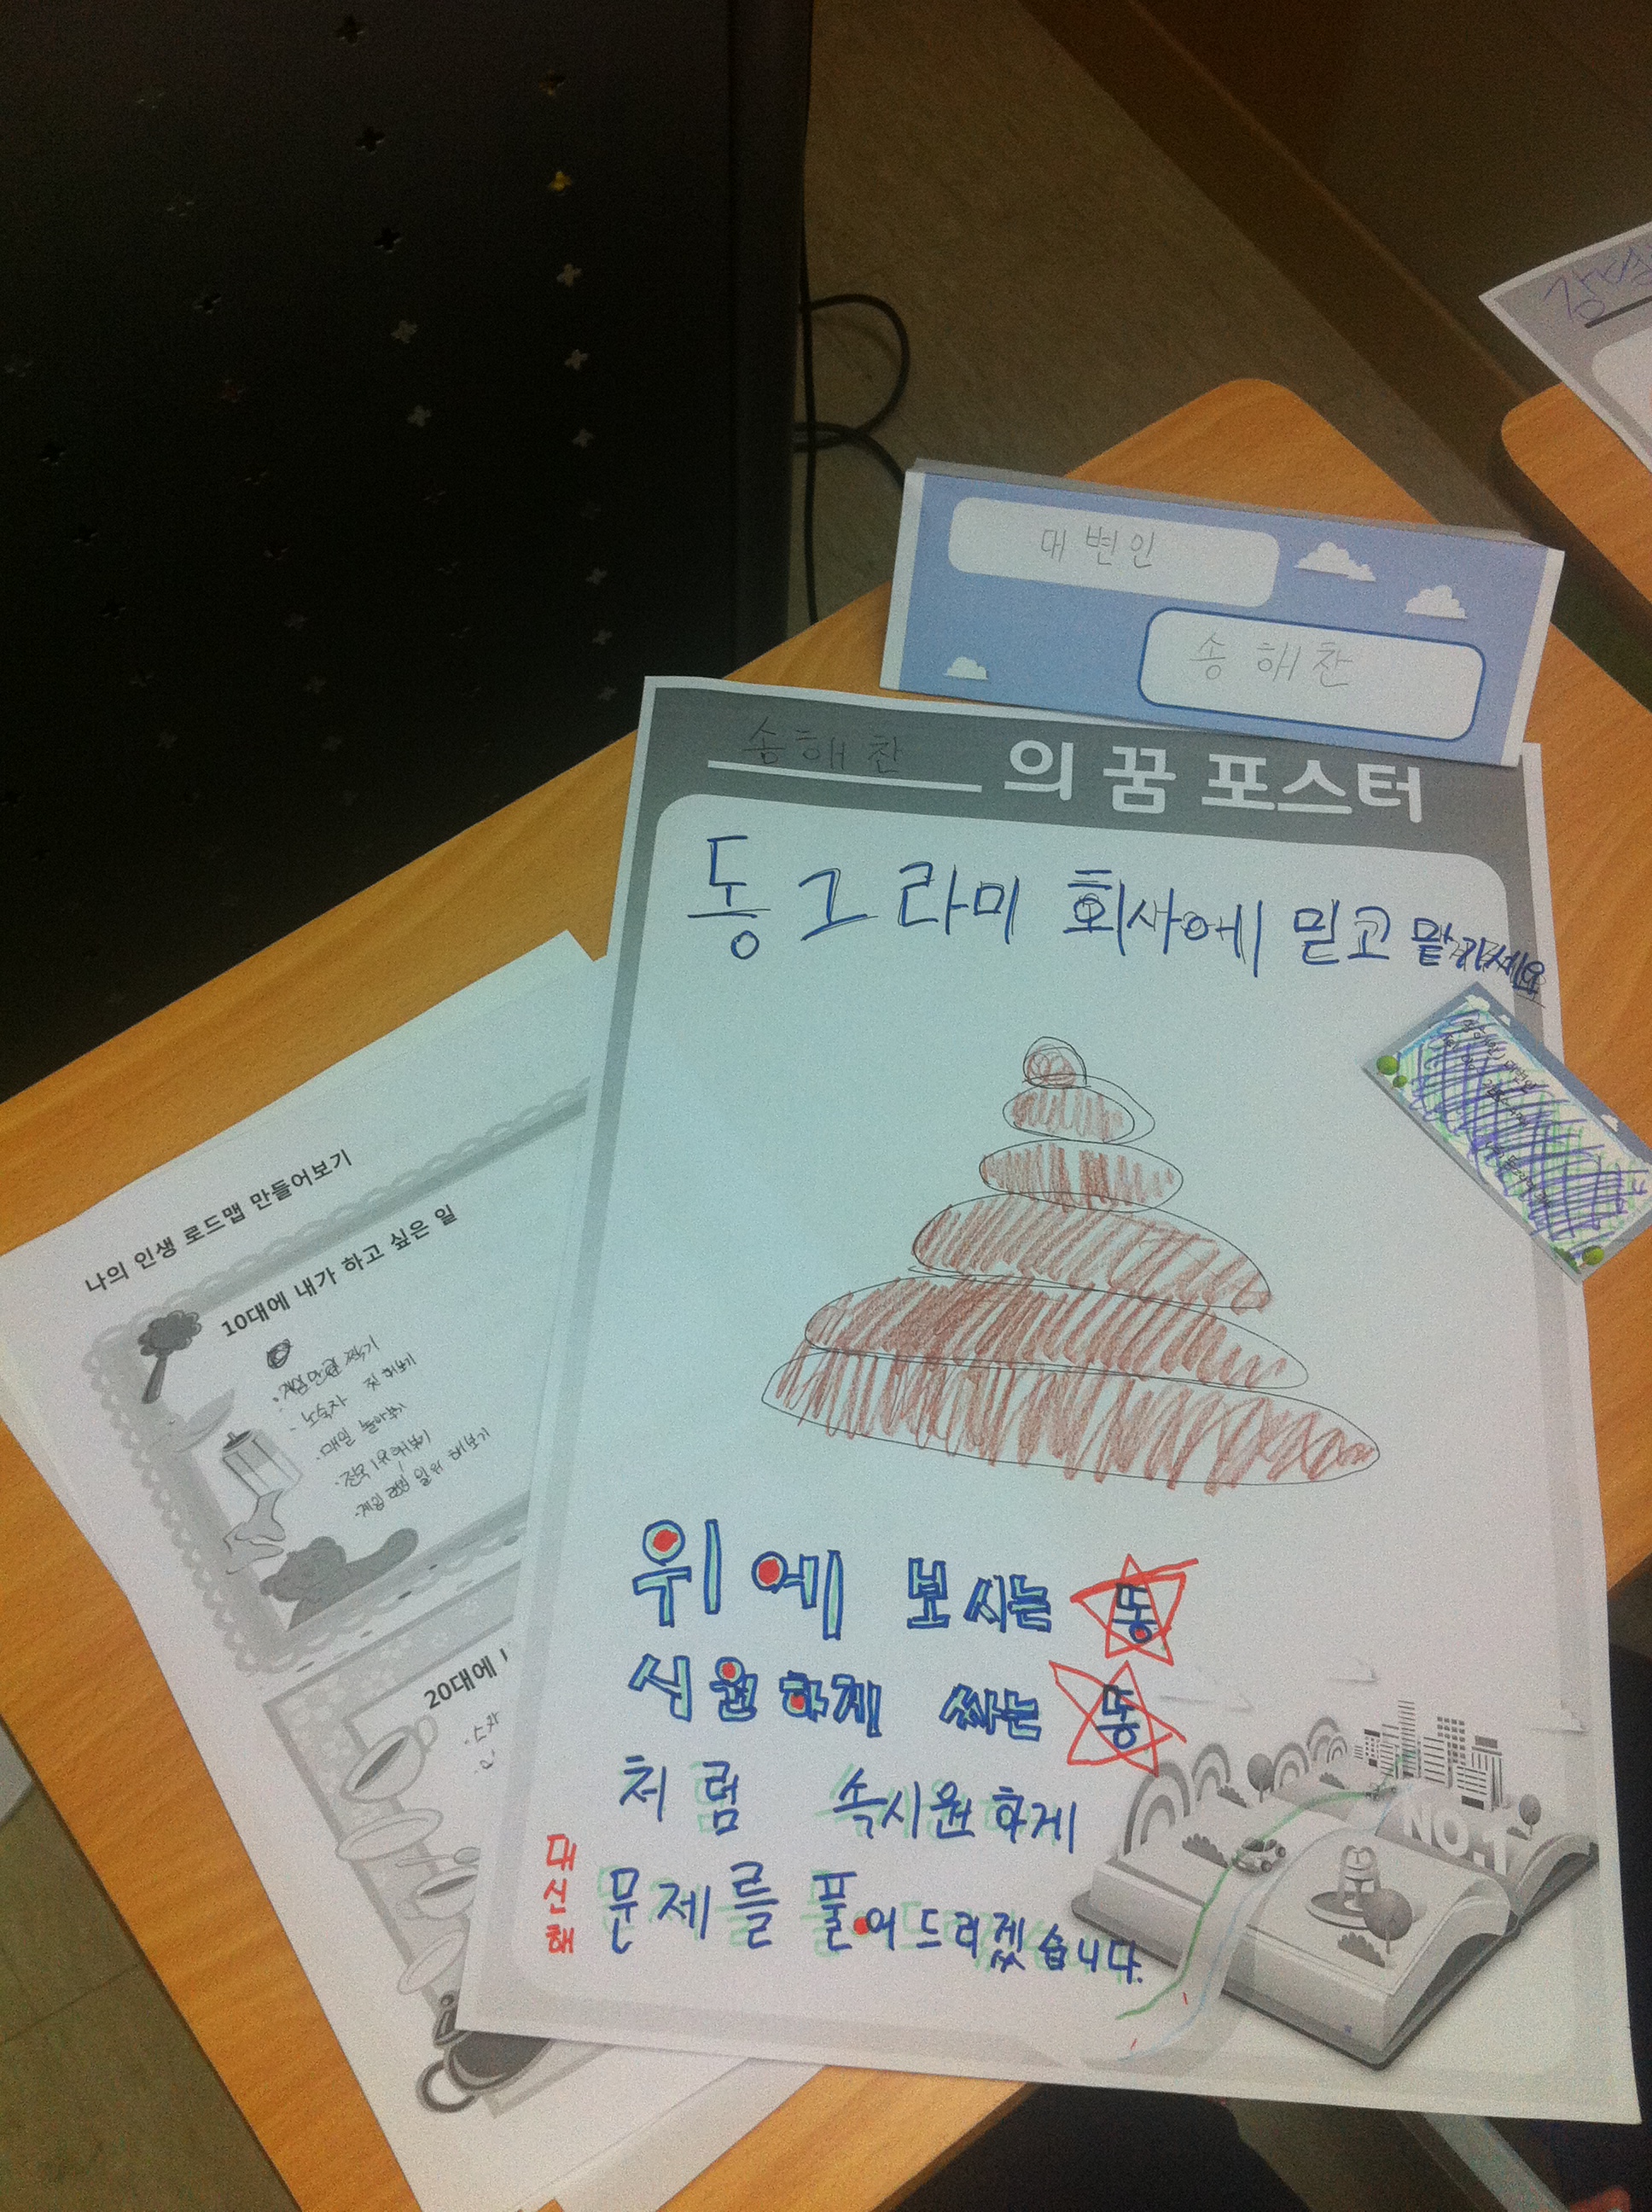 대변인
송해찬
송해찬의 꿈 포스터
동그라미 회사에 믿고 맡기세요
위에 보시는 똥
시원하게 싸는 똥
처럼 속시원하게
대신해
문제를 풀어드리겠습니다.
NO.1
나의 인생 로드맵 만들어보기
10대에 내가 하고 싶은 일
·게임만렙 찍기
·노숙자 짓 해보기
·매일 놀아보기
·전국1위해보기
·게임 랭킹 일위 해보기
20대에